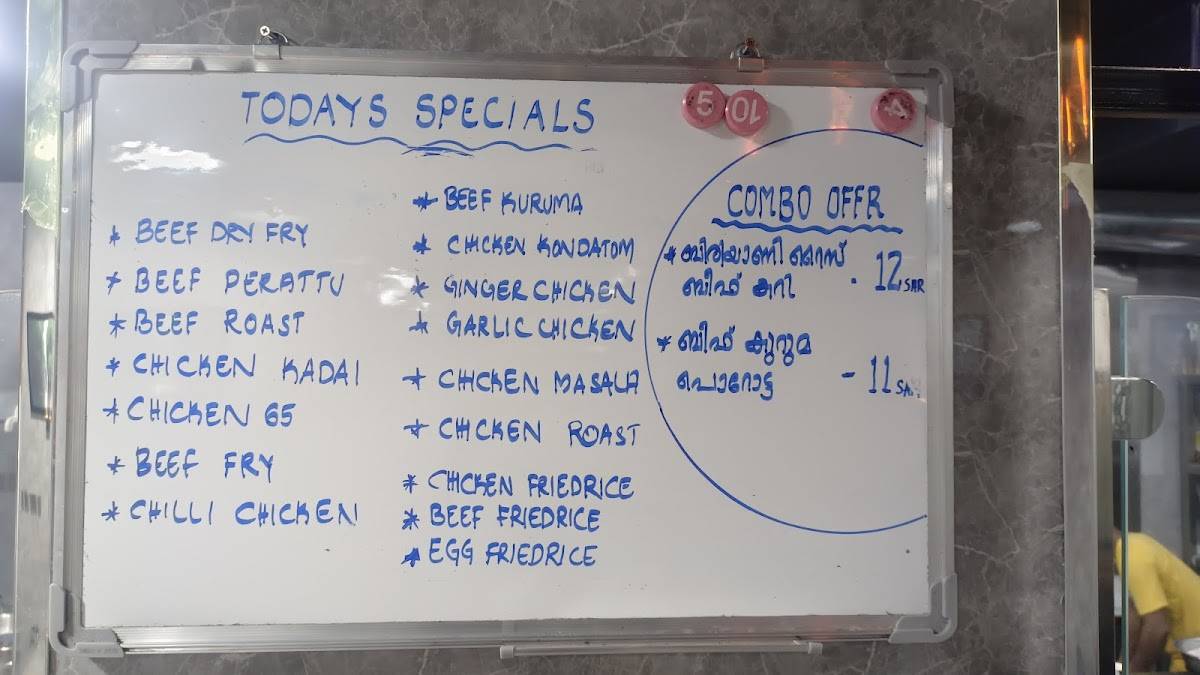 TODAYS SPECIALS
* BEEF DRY FRY
* BEEF PERATTU
* BEEF ROAST
* CHICKEN KADAI
* CHICKEN 65
* BEEF FRY
* CHILLI CHICKEN
* BEEF KURUMA
* CHICKEN KONDATOM
* GINGER CHICKEN
* GARLIC CHICKEN
* CHICKEN MASALA
* CHICKEN ROAST
* CHICKEN FRIEDRICE
* BEEF FRIEDRICE
* EGG FRIEDRICE
5 10 4
COMBO OFFR
* ബിരിയാണി റൈസ്
ബീഫ് കറി - 12 SAR
* ബീഫ് കുറുമ
പൊറോട്ട - 11 SAR